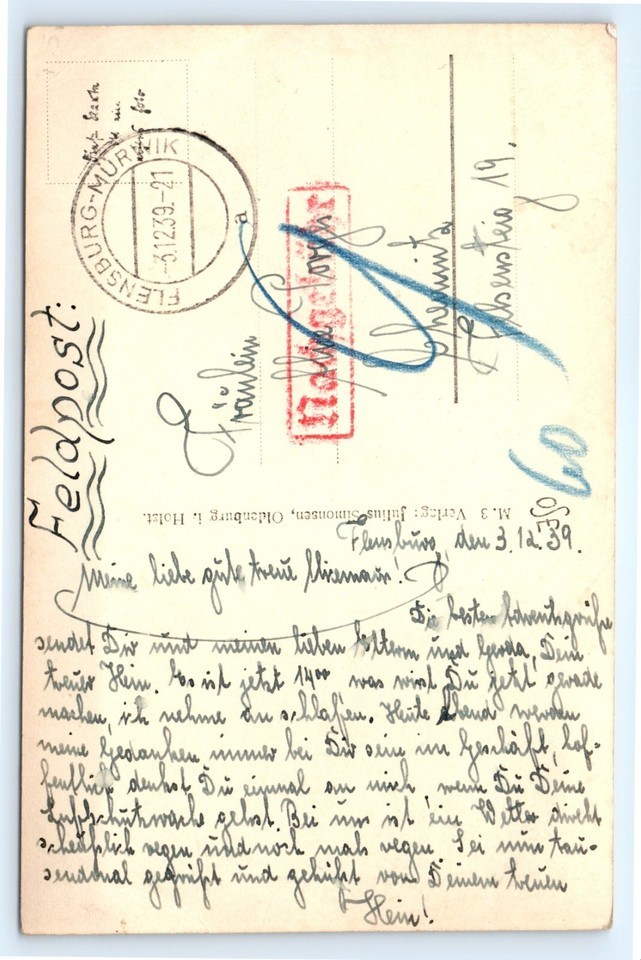 Feldpost:
FLENSBURG-MÜRWIK
-3.12.39.-21
a
FLENSBURG
Nachgebühr
Fräulein
Chemnitz
19.
60
M. 3 Verlag: Julius Simonsen, Oldenburg i. Holst.
Flensburg, den 3.12.39.
Meine liebe gute treue
Die besten Adventsgrüße
sendet Dir und meinen lieben Eltern und Gerda, Dein
treuer Hein. Es ist jetzt 14⁰⁰ was wirst Du jetzt gerade
machen, ich nehme an schlafen. Heute Abend werden
meine Gedanken immer bei Dir sein im Geschäft, hof-
fentlich denkst Du einmal an mich, wenn Du Deine
Luftschutzwache gehst. Bei uns ist ein Wetter direkt
scheußlich regen und noch mals regen. Sei nun tau-
sendmal gegrüßt und geküßt von Deinem treuen
Hein!